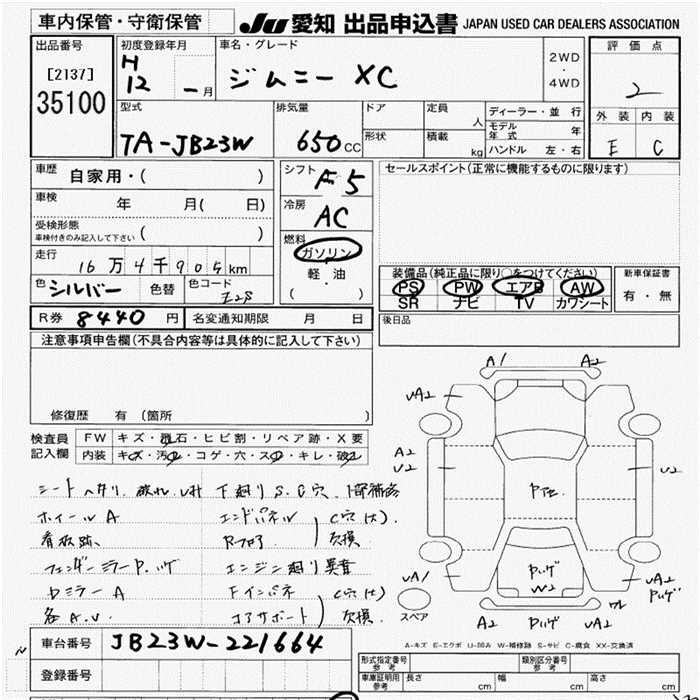 車内保管・守衛保管
JU 愛知 出品申込書 JAPAN USED CAR DEALERS ASSOCIATION
出品番号
[2137]
35100
初度登録年月
H
12 ー 月
車名・グレード
ジムニー XC
2WD
・
4WD
評価点
2
外装 内装
E C
型式
TA-JB23W
排気量
650 CC
ドア
形状
定員 人
積載 kg
ディーラー・並行
モデル年式 年
ハンドル 左・右
車歴
自家用・( )
車検 年 月( 日)
受検形態
車検付きのみ記入して下さい ( )
走行
16万4千905km
色 シルバー 色替 色コード Z2S
シフト F5
冷房 AC
燃料
ガソリン
軽油
( ・ )
セールスポイント(正常に機能するものに限ります)
装備品(純正品に限り○をつけてください)
PS PW エアB AW
SR ナビ TV カワシート
新車保証書
有・無
R券 8440 円 名変通知期限 月 日
後日品
注意事項申告欄(不具合内容等は具体的に記入して下さい)
修復歴 有 (箇所 )
検査員記入欄
FW キズ・飛石・ヒビ割・リペア跡・X要
内装 キズ・汚レ・コゲ・穴・スレ・キレ・破レ
シートヘタリ、破れ、シミ 下廻りS.C穴、1部補修
ホイールA エンドパネル (穴(大).
看板跡、 Rフロア 欠損
フェンダーミラーP、ハゲ エンジン廻り異音
ドミラーA Fインパネ (穴(大)
各A.U. コアサポート 欠損、
A1 A2
UA2
A2
U2
U2
Pハゲ
W2
UA1
スペア
A2 Pハゲ UA2
UA2
Pハゲ
A-キズ E-エクボ U-凹み W-補修跡 S-サビ C-腐食 XX-交換済
車台番号 JB23W-221664
登録番号
型式指定番号 参考
類別区分番号 参考
車庫証明用 参考 長さ cm 幅 cm 高さ cm